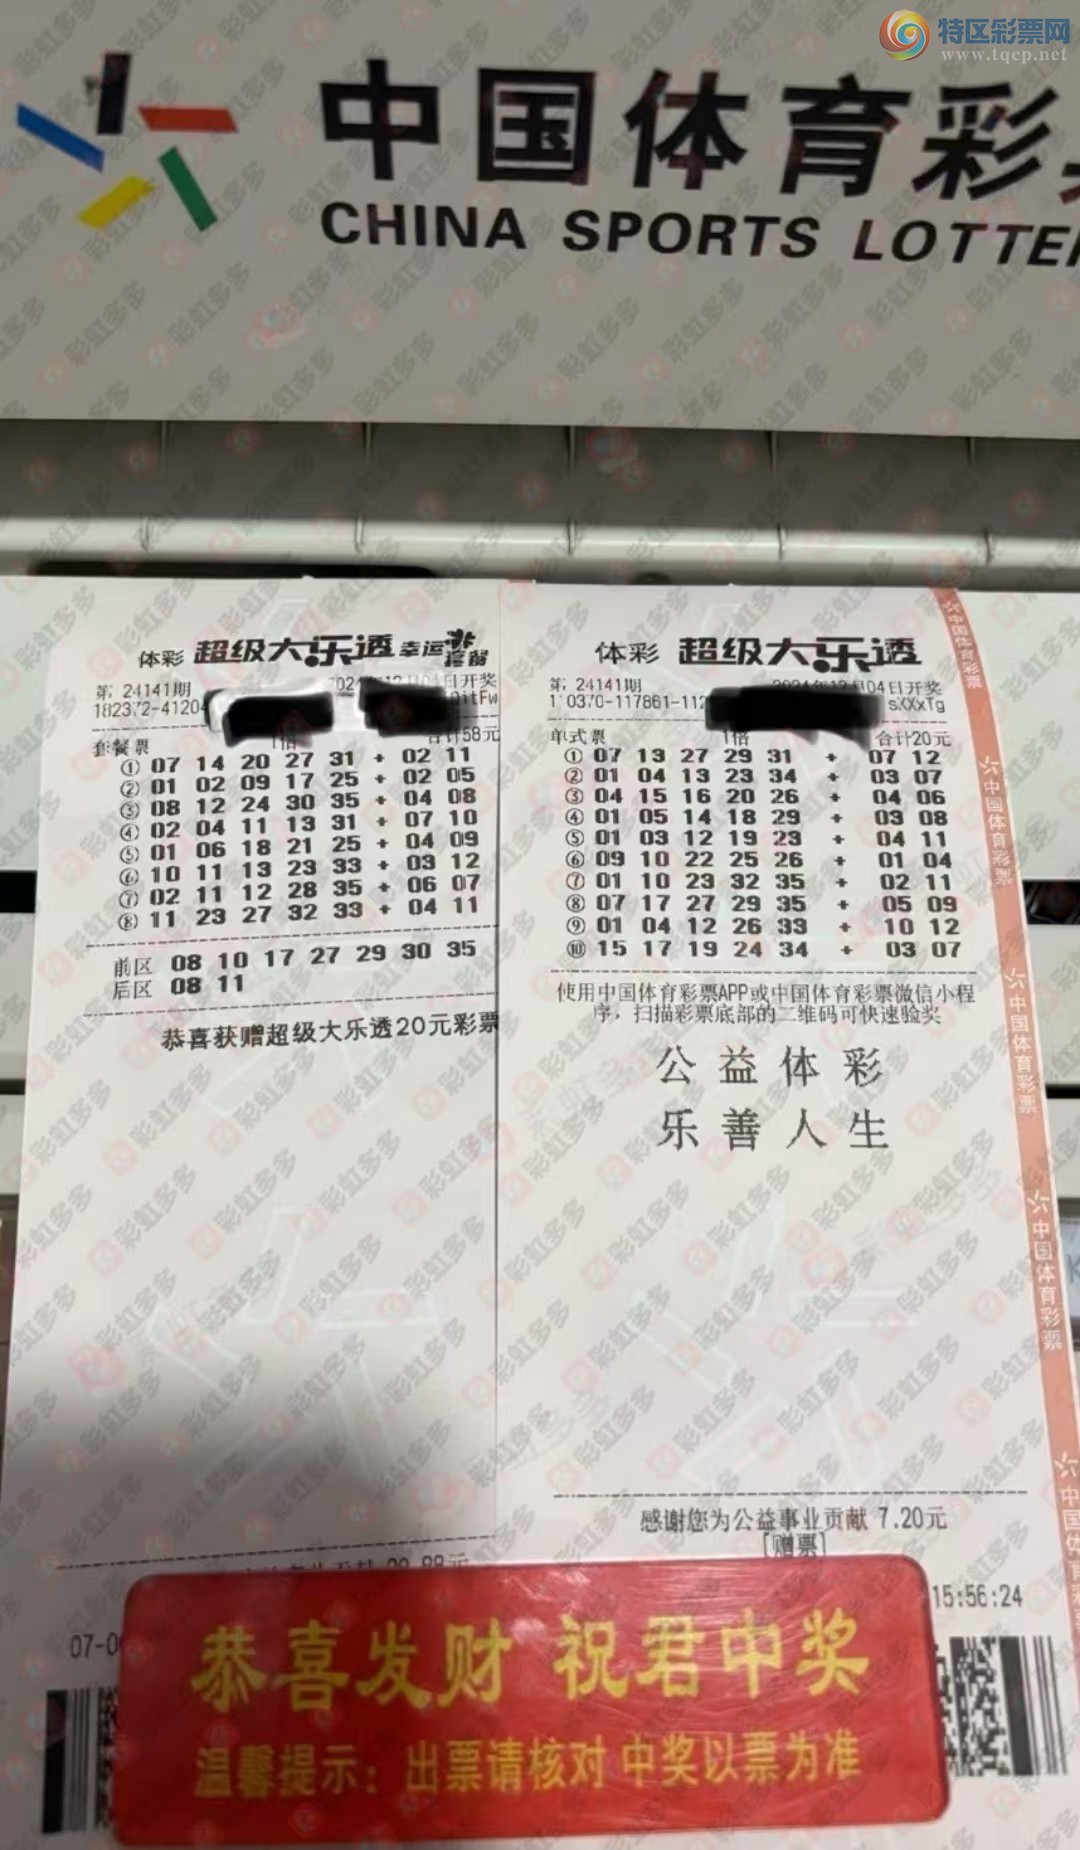 特区彩票网
www.tqcp.net
中国体育彩
CHINA SPORTS LOTTER
体彩 超级大乐透 幸运 套餐
第 24141期
日开奖
182372-41204
itFw
套餐票 1倍 合计58元
① 07 14 20 27 31 + 02 11
② 01 02 09 17 25 + 02 05
③ 08 12 24 30 35 + 04 08
④ 02 04 11 13 31 + 07 10
⑤ 01 06 18 21 25 + 04 09
⑥ 10 11 13 23 33 + 03 12
⑦ 02 11 12 28 35 + 06 07
⑧ 11 23 27 32 33 + 04 11
前区 08 10 17 27 29 30 35
后区 08 11
恭喜获赠超级大乐透20元彩票
07-0
体彩 超级大乐透
第 24141期 2024年12月04日开奖
110370-117861-112 sXXxTg
单式票 1倍 合计20元
① 07 13 27 29 31 + 07 12
② 01 04 13 23 34 + 03 07
③ 04 15 16 20 26 + 04 06
④ 01 05 14 18 29 + 03 08
⑤ 01 03 12 19 23 + 04 11
⑥ 09 10 22 25 26 + 01 04
⑦ 01 10 23 32 35 + 02 11
⑧ 07 17 27 29 35 + 05 09
⑨ 01 04 12 26 33 + 10 12
⑩ 15 17 19 24 34 + 03 07
使用中国体育彩票APP或中国体育彩票微信小程
序，扫描彩票底部的二维码可快速验奖
公益体彩
乐善人生
感谢您为公益事业贡献 7.20元
[赠票]
15:56:24
中国体育彩票
中国体育彩票
中国体育彩票
中国体育彩票
恭喜发财 祝君中奖
温馨提示：出票请核对 中奖以票为准
彩虹多多